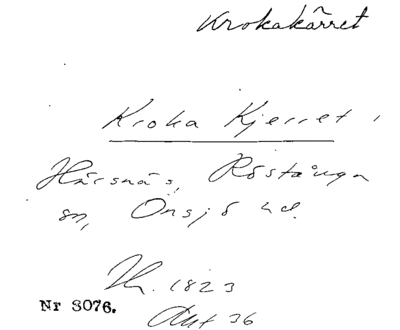 Krokakärret
Kroka Kjerret,
Härsnäs, Röstånga
sn, Onsjö hd.
Th. 1823
Nr 3076.
Akt 36